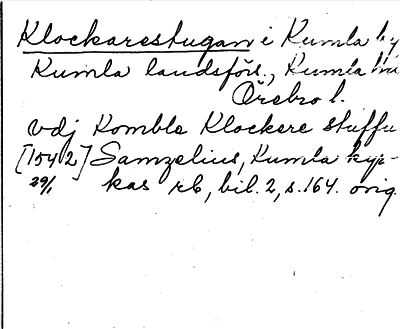 Klockarestugan i Kumla by
Kumla landsförs., Kumla hd
Örebro l.
vdj Komble Klockere stuffu
[1542] Samzelius, Kumla kyr-
29/1 kas rb, bil. 2, s. 164. orig.